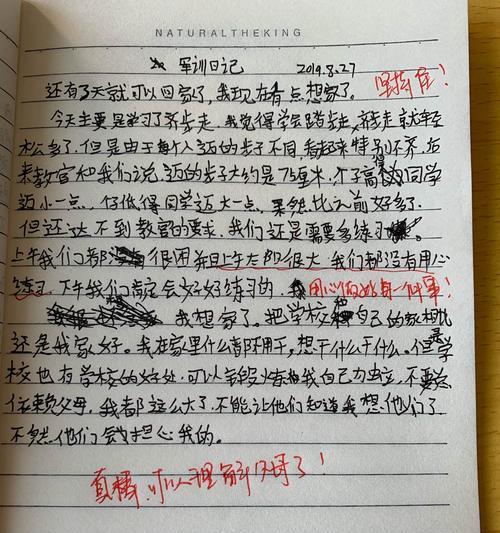 NATURALTHEKING
军训日记 2019.8.27
还有3天就可以回家了,我现在有点想家了。 坚持住!
今天主要是学习了齐步走,我觉得学会踏步走,齐走就轻
松多了。但是由于每个人迈的步子不同,看起来特别不齐,后
来教官和我们说迈的步子大约是75厘米,个子高得的同学
迈小一点,仔低得同学迈大一点,果然比之前好多了.
但还达不到教官的要求,我们还是需要多练习。
上午我们都很困,上午太阳很大,我们都没有用心
练习,下午我们肯定会好好练习的, 用心做好每一件事!
我想家了。把学校和自己的家相比
还是我家好。我在家里什么都不用干,想干什么干什么。但是学
校也有学校的好处,可以锻炼我自己力独立,不要总
依赖父母,我都这么大了,不能让他们知道我想他们了
不然他们会担心我的。
真棒,可以理解父母了!